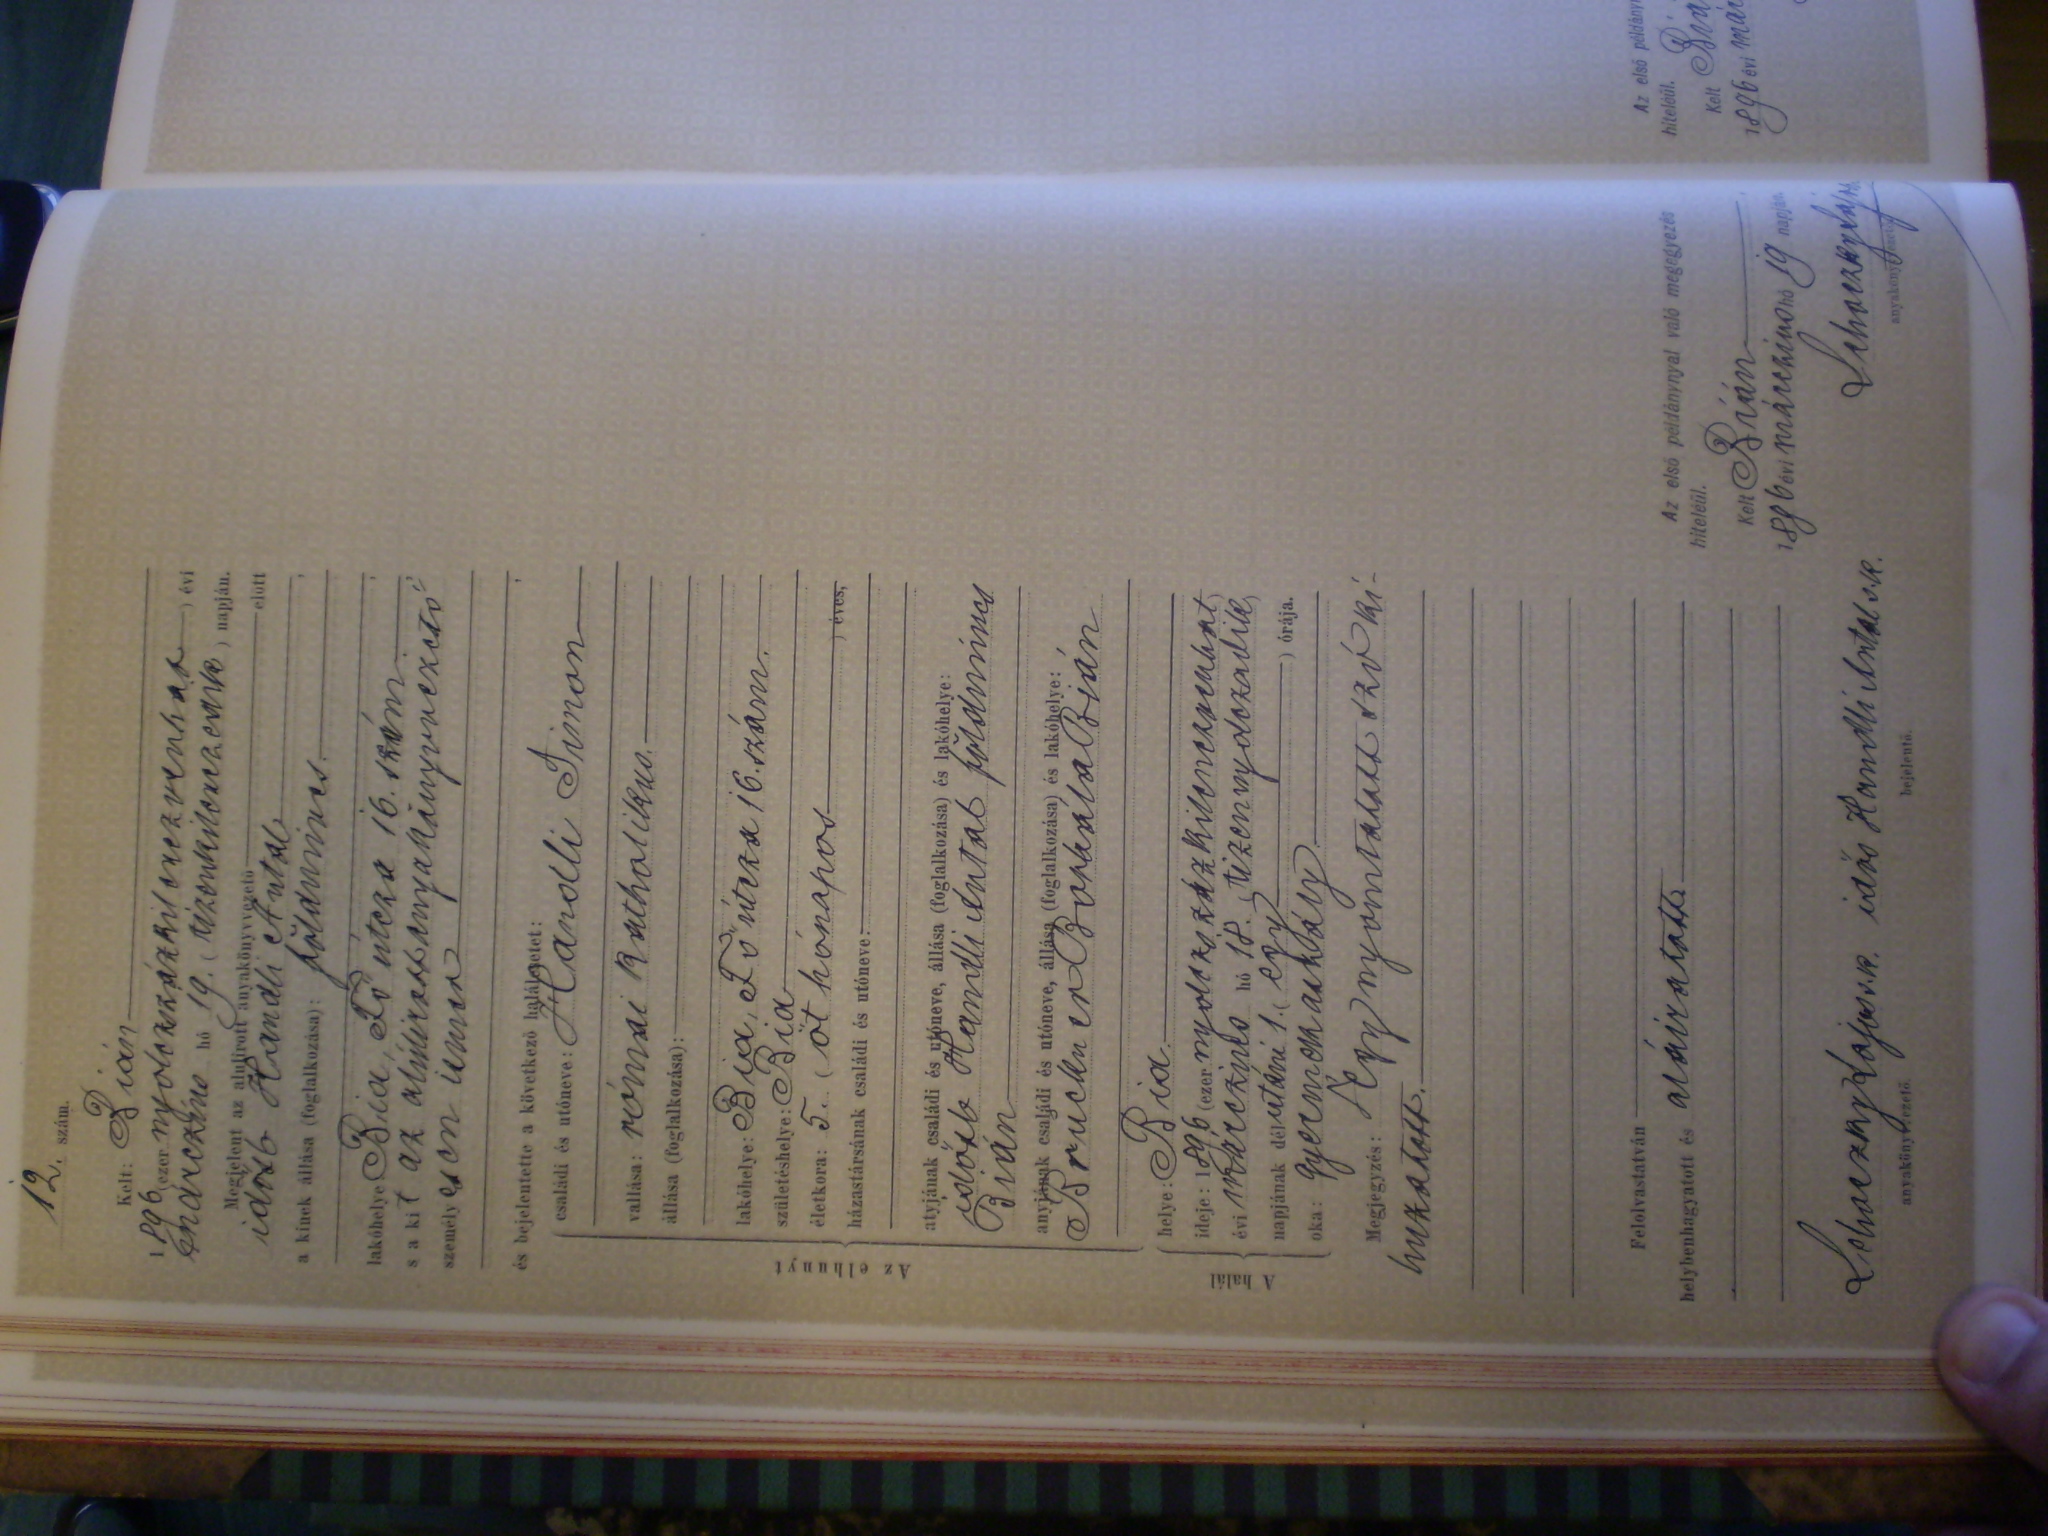 12. szám.
Kelt: Bián
1896 (ezernyolczszázkilenczvenhat) évi
márczius hó 19. (tizenkilenczedik) napján.
Megjelent az alulirott anyakönyvvezető előtt
idősb Handli Antal
a kinek állása (foglalkozása): földmíves.
lakóhelye Bia, Fő útcza 16. szám.
s a kit az alulírott anyakönyvvezető
személyesen ismer
és bejelentette a következő halálesetet:
Az elhunyt
családi és utóneve: Handli Simon
vallása: római katholikus.
állása (foglalkozása):
lakóhelye: Bia, Fő útcza 16. szám.
születéshelye: Bia
életkora: 5. (öt hónapos) éves,
házastársának családi és utóneve:
atyjának családi és utóneve, állása (foglalkozása) és lakóhelye:
idősb Handli Antal földmíves
Bián
anyjának családi és utóneve, állása (foglalkozása) és lakóhelye:
Bruckner Borbála Bián
A halál
helye: Bia.
ideje: 1896 (ezernyolczszázkilenczvenhat)
évi márczius hó 18. (tizennyolczadik)
napjának délutáni 1. (egy) órája.
oka: gyermekaszály
Megjegyzés: Egy nyomtatott szó ki-
huzatott.
Felolvastatván
helybenhagyatott és aláiratott.
Lehoczky Lajos s.k. idős Handli Antal s.k.
anyakönyvvezető. bejelentő.
Az első példánynyal való megegyezés
hiteléül.
Kelt Bián
1896 évi márczius hó 19 napján.
Lehoczky Lajos
anyakönyvvezető
Az első példány
hiteléül.
Kelt
1896 évi